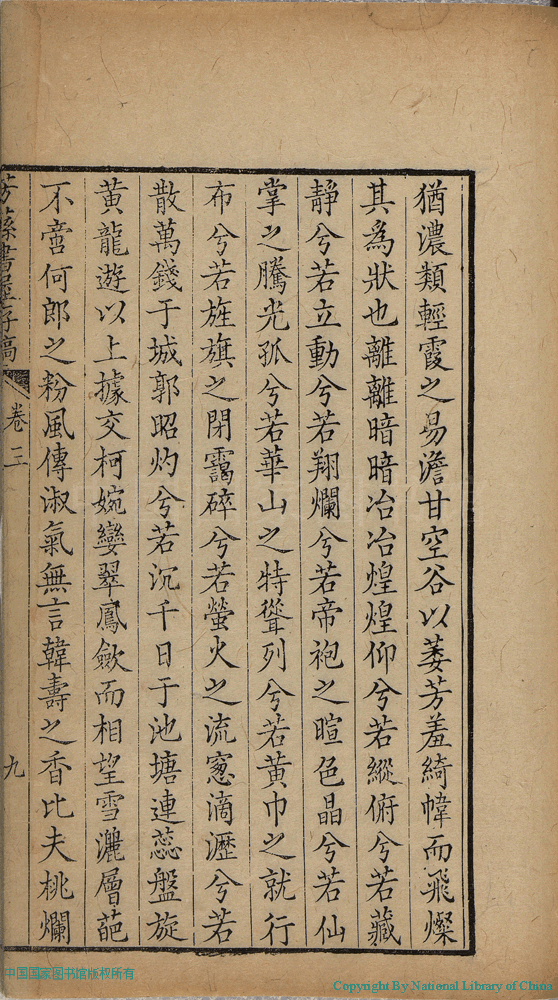 猶濃類輕霞之易澹甘空谷以萎芳羞綺幃而飛燦
其為狀也離離暗暗冶冶煌煌仰兮若縱俯兮若藏
靜兮若立動兮若翔爛兮若帝袍之暄色晶兮若仙
掌之騰光孤兮若華山之特聳列兮若黃巾之就行
布兮若旌旗之閉靄碎兮若螢火之流窻滴瀝兮若
散萬錢于城郭昭灼兮若沉千日于池塘連蕊盤旋
黃龍遊以上據交柯婉孌翠鳳歛而相望雪灑層葩
不啻何郎之粉風傳淑氣無言韓壽之香比夫桃爛
卷三
九
中国国家图书馆版权所有
Copyright By National Library of China